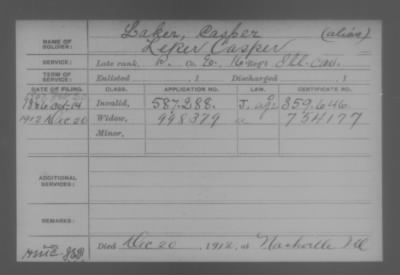 NAME OF SOLDIER:
Laker, Casper (alias)
Leker Casper
SERVICE:
Late rank, Co. E, 16 Regt Ill. Cav.
TERM OF SERVICE:
Enlisted , 1 Discharged , 1
DATE OF FILING. CLASS. APPLICATION NO. LAW. CERTIFICATE NO.
1886 Oct 14 Invalid, 587.288. J. 359.646.
1912 Dec 20 Widow, 998379 754177
Minor,
ADDITIONAL SERVICES:
REMARKS:
Died Dec 20, 1912, at Nashville Ill